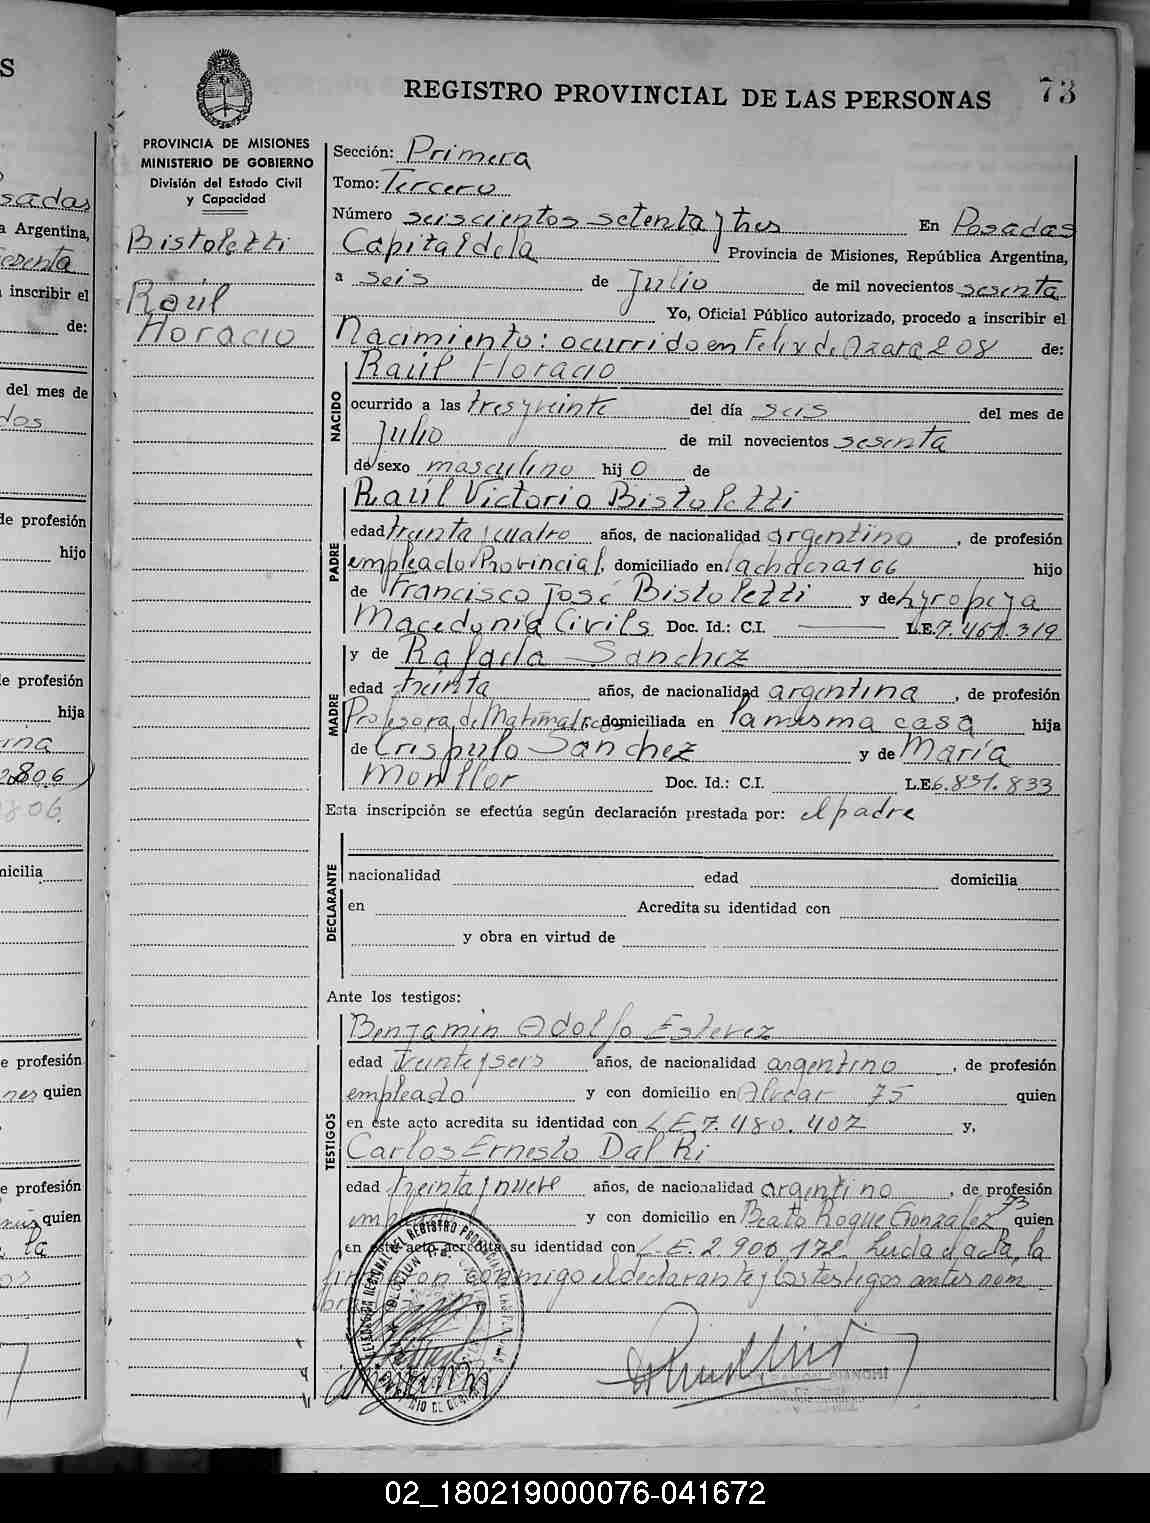 REGISTRO PROVINCIAL DE LAS PERSONAS
73
PROVINCIA DE MISIONES
MINISTERIO DE GOBIERNO
División del Estado Civil
y Capacidad
Bistoletti
Raúl
Horacio
Sección: Primera
Tomo: Tercero
Número seiscientos setenta y tres En Posadas
Capital de la Provincia de Misiones, República Argentina,
a seis de Julio de mil novecientos sesenta
Yo, Oficial Público autorizado, procedo a inscribir el
Nacimiento: ocurrido en Felix de Azara 208 de:
Raúl Horacio
NACIDO
ocurrido a las tres y veinte del día seis del mes de
Julio de mil novecientos sesenta
de sexo masculino hijo de
Raúl Victorio Bistoletti
PADRE
edad treinta y cuatro años, de nacionalidad argentina, de profesión
empleado Provincial, domiciliado en la chacra 166 hijo
de Francisco José Bistoletti y de
Macedonia Civils Doc. Id.: C.I. L.E. 7.461.319
y de Rafaela Sanchez
MADRE
edad treinta años, de nacionalidad argentina, de profesión
Profesora de Matemáticas domiciliada en la misma casa hija
de Crispulo Sanchez y de María
Monllor Doc. Id.: C.I. L.E. 6.831.833
Esta inscripción se efectúa según declaración prestada por: el padre
DECLARANTE
nacionalidad edad domicilia
en Acredita su identidad con
y obra en virtud de
Ante los testigos:
Benjamin Adolfo Estevez
TESTIGOS
edad treinta y seis años, de nacionalidad argentino, de profesión
empleado y con domicilio en Alvear 75 quien
en este acto acredita su identidad con L.E. 7.480.402 y,
Carlos Ernesto Dal Ri
edad treinta y nueve años, de nacionalidad argentino, de profesión
y con domicilio en Beato Roque Gonzalez 73 quien
en este acto acredita su identidad con L.E. 2.900.178. Leida el acta, la
firmaron conmigo el declarante y los testigos antes nom
02_180219000076-041672